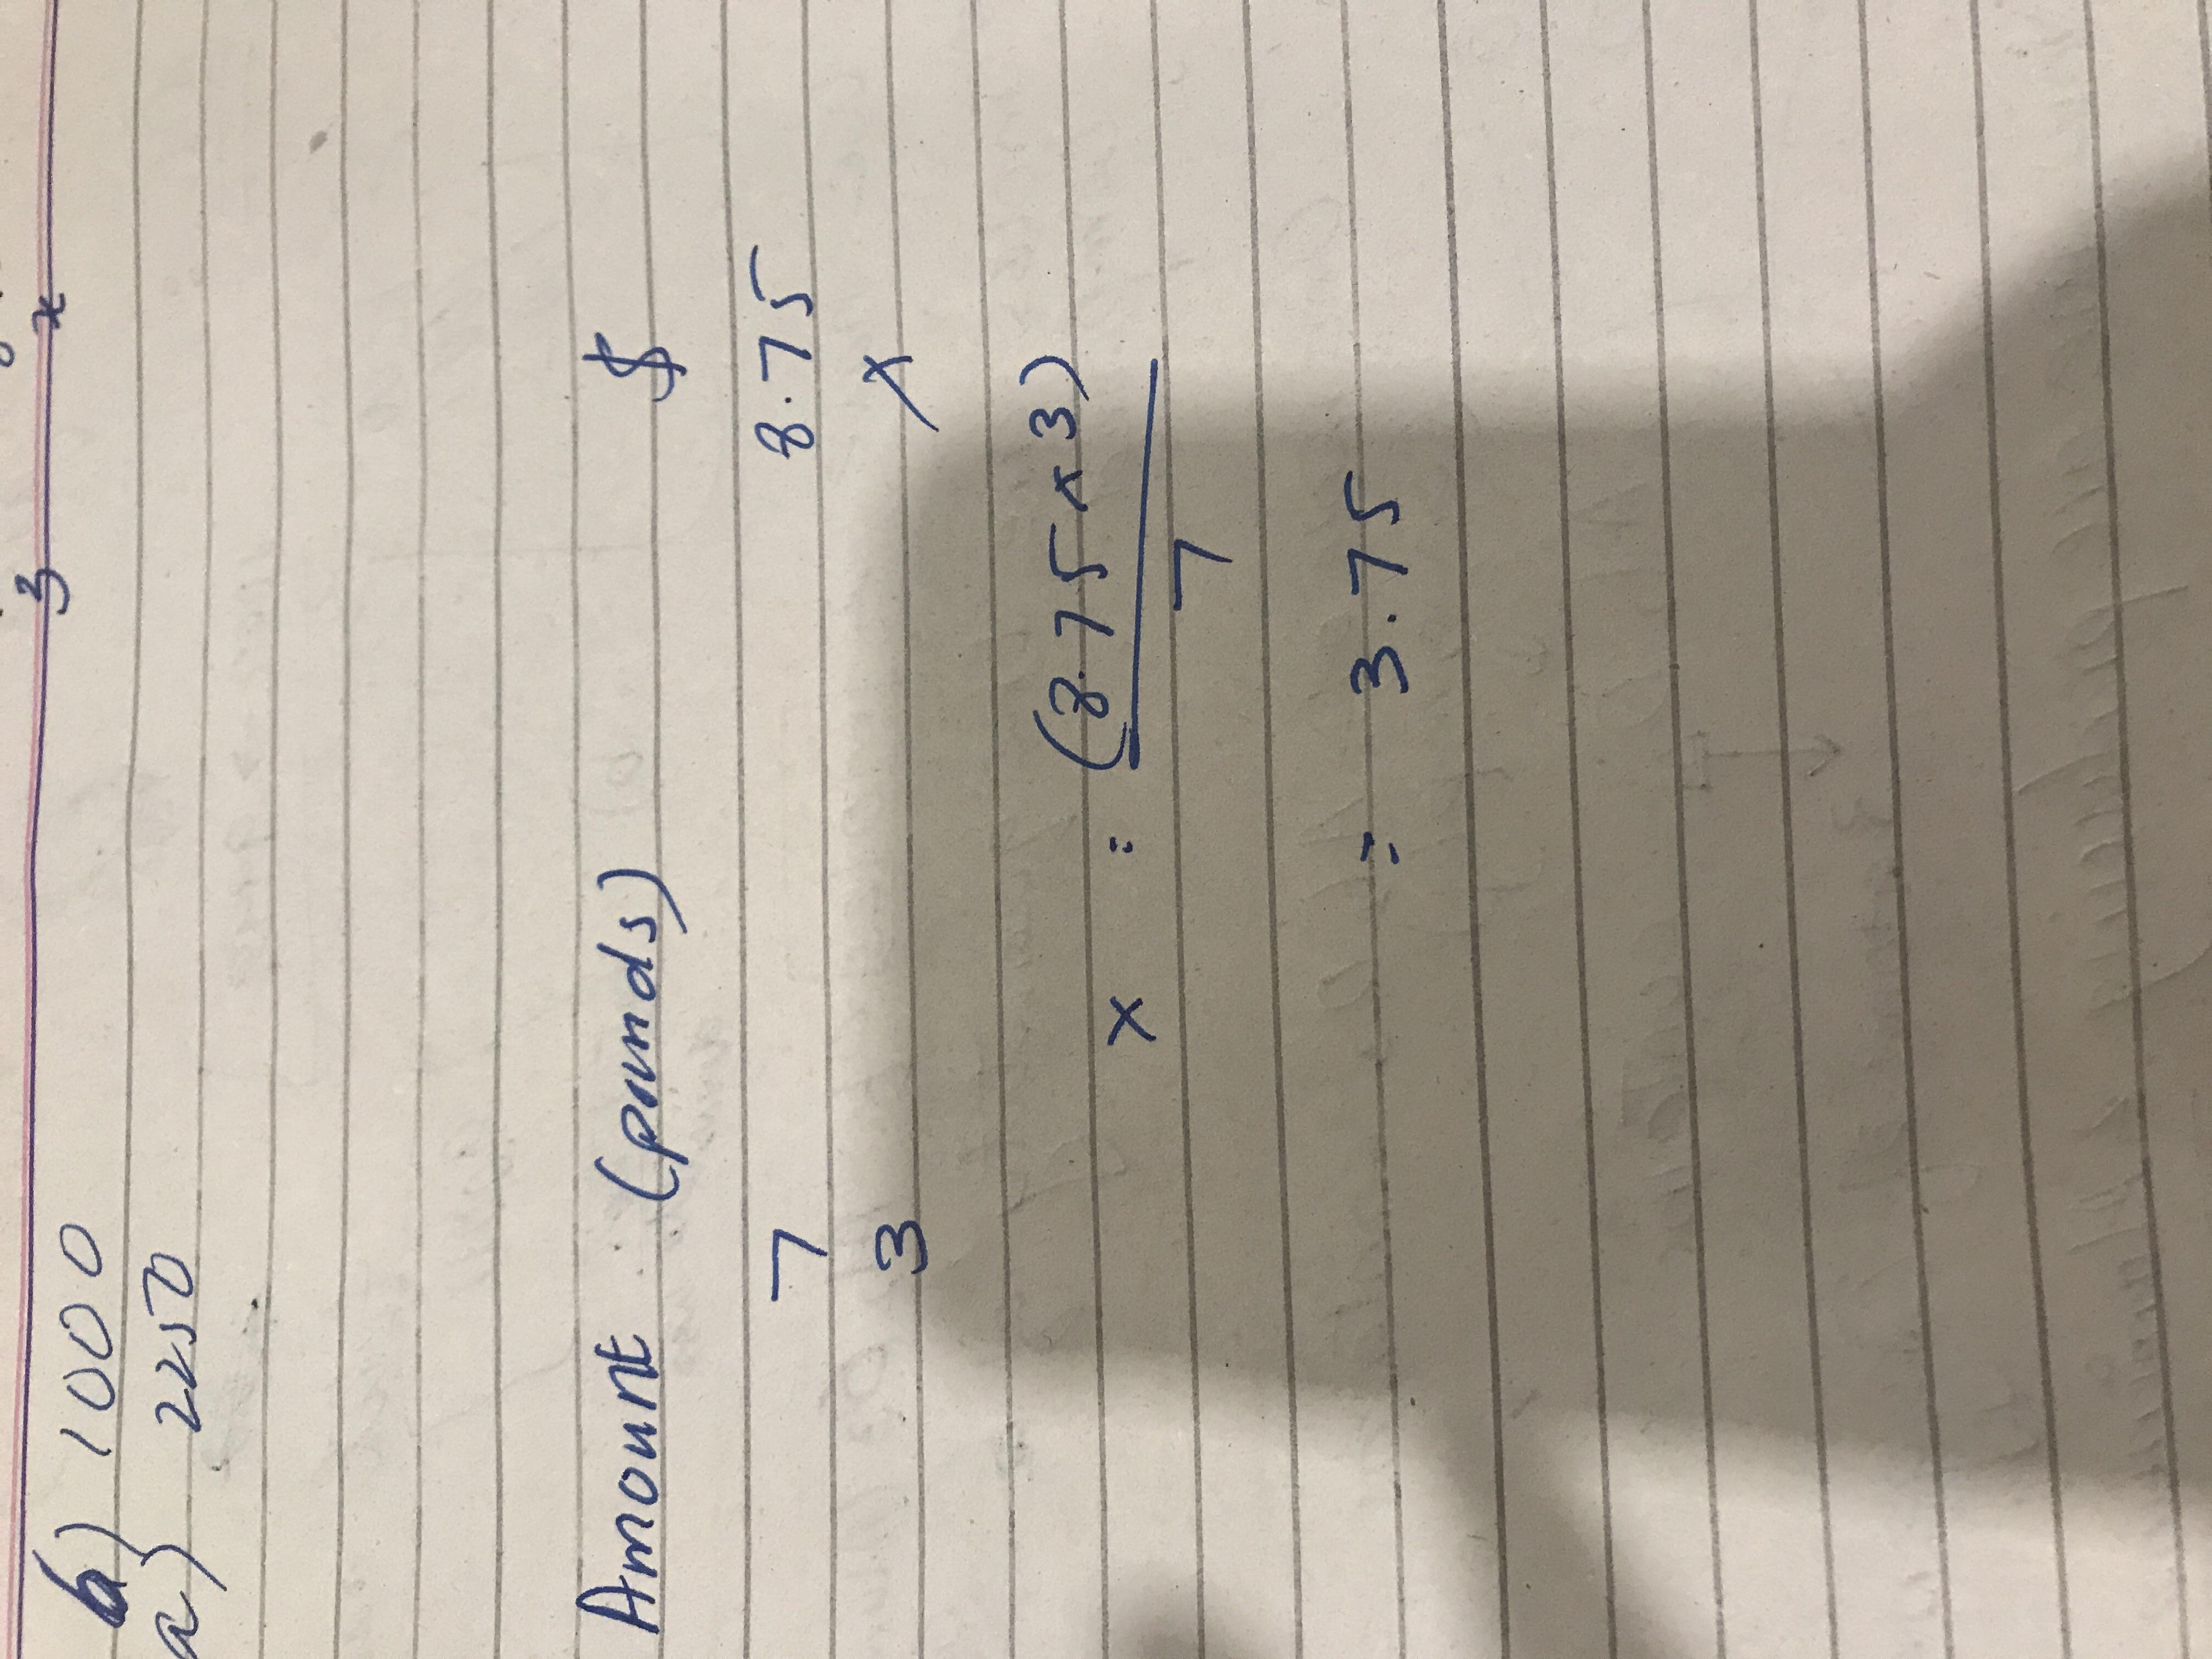 3 x
b) 1000
a) 2250
Amount (pounds) $
7 8.75
3 x
x = (8.75 x 3)
7
= 3.75